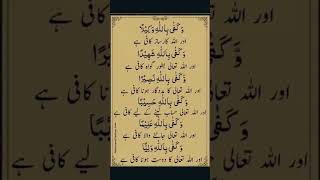 وَ كَفٰى بِاللّٰهِ وَكِيْلًا
اور اللہ کارساز کافی ہے
وَ كَفٰى بِاللّٰهِ شَهِيْدًا
اور اللہ تعالی بطور گواہ کافی ہے
وَ كَفٰى بِاللّٰهِ نَصِيْرًا
اور اللہ تعالی کا مددگار ہونا کافی ہے
وَ كَفٰى بِاللّٰهِ حَسِيْبًا
اور اللہ تعالی حساب لینے کے لیے کافی ہے
وَ كَفٰى بِاللّٰهِ عَلِيْمًا
اور اللہ تعالی جاننے والا کافی ہے
وَ كَفٰى بِاللّٰهِ وَلِيًّا
اور اللہ تعالی کا دوست ہونا کافی ہے